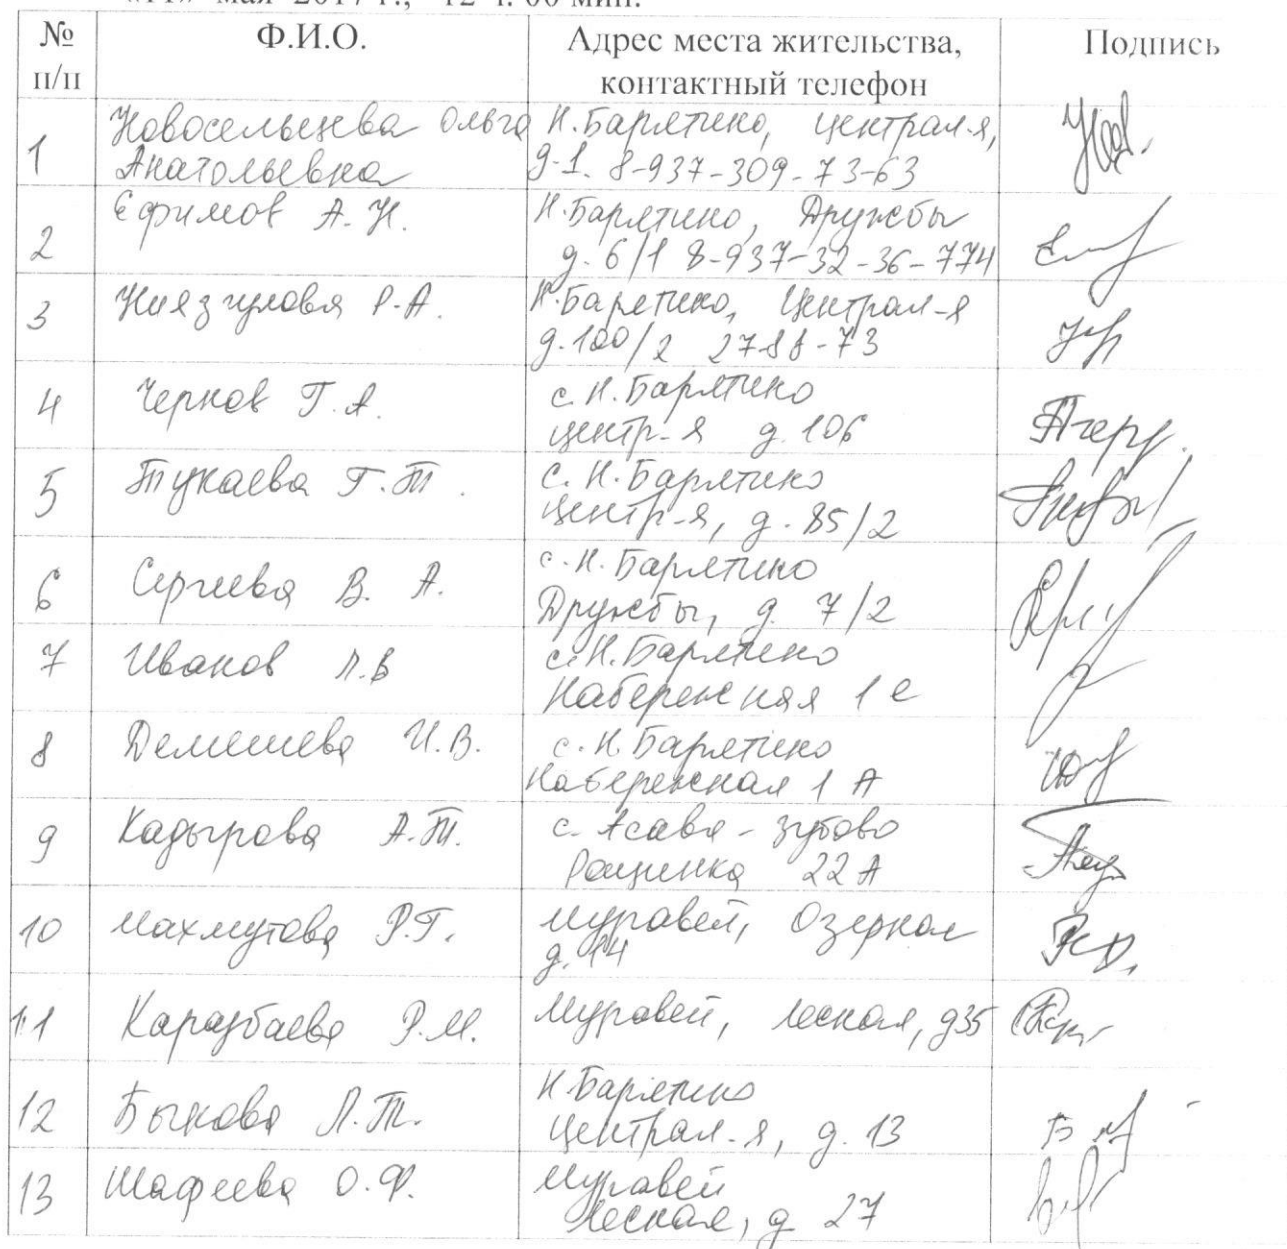 «11» мая 2017 г., 12 ч. 00 мин.
№ п/п Ф.И.О. Адрес места жительства, контактный телефон Подпись
1 Новосельцева Ольга Анатольевна Н.Барятино, Централ-я, д-1. 8-937-309-73-63
2 Ефимов А.Н. Н.Барятино, Дружбы д. 6/1 8-937-32-36-774
3 Ниязгулова Р.А. Н.Барятино, Централ-я д.100/2 2788-73
4 Чернов Г.А. с.Н.Барятино центр-я д.106
5 Тукаева Г.Т. с.Н.Барятино центр-я, д.85/2
6 Сергеева В.А. с.Н.Барятино Дружбы, д. 7/2
7 Иванов П.В с.Н.Барятино Набережная 1 е
8 Демешева И.В. с.Н.Барятино Набережная 1 А
9 Кадырова А.Т. с. Асава-Зубово 22 А
10 Махмутова Р.Г. Муравей, Озерная д.14
11 Каразбаева Р.М. Муравей, Лесная, д35
12 Быкова Л.Т. Н.Барятино Централ-я, д.13
13 Шафеева О.Ф. Муравей Лесная, д 27